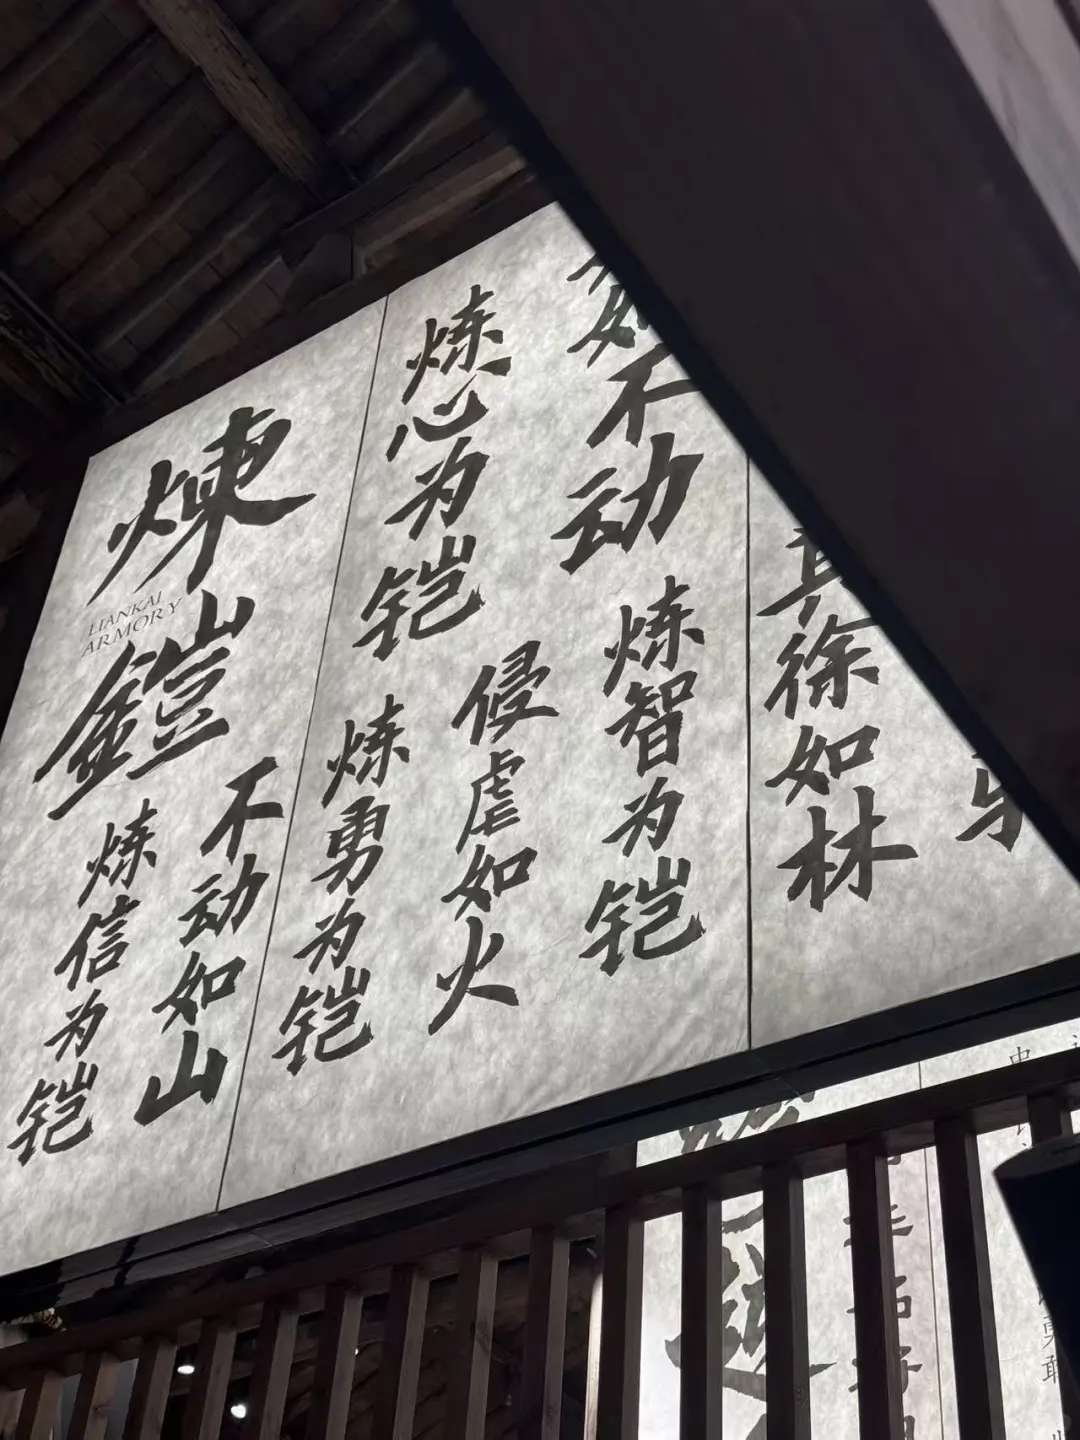 煉鎧
LIANKAI
ARMORY
炼信为铠
不动如山
炼心为铠
炼勇为铠
侵虐如火
如不动
炼智为铠
其徐如林
忠
勇敢